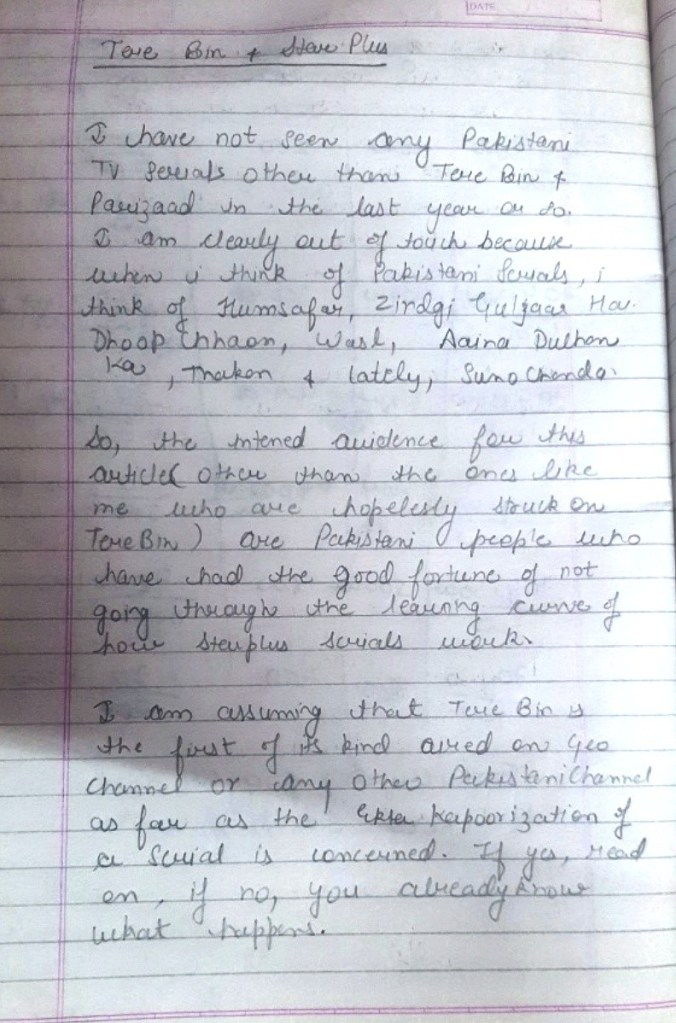 DATE
Tere Bin & Star Plus
I have not seen any Pakistani
TV serials other than Tere Bin &
Parizaad in the last year or so.
I am clearly out of touch because
when i think of Pakistani serials, i
think of Humsafar, Zindgi Gulzaar Hai
Dhoop Chhaon, Wasl, Aaina Dulhan
ka, Thakan & lately, Suno Chanda.
So, the intened auidence for this
article( other than the ones like
me who are hopelessly struck on
Tere Bin) are Pakistani people who
have had the good fortune of not
going through the learning curve of
how starplus serials work.
I am assuming that Tere Bin is
the first of its kind aired on Geo
Channel or any other Pakistani Channel
as far as the Ekta Kapoorization of
a serial is concerned. If yes, read
on, if no, you already know
what happens.